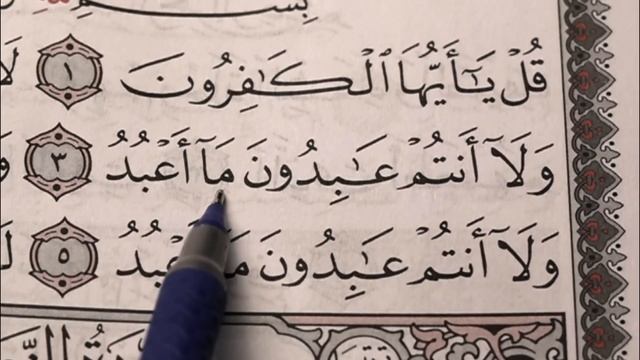 بِسْمِ
قُلْ يَـٰٓأَيُّهَا ٱلْكَـٰفِرُونَ ١ لَا
وَلَآ أَنتُمْ عَـٰبِدُونَ مَآ أَعْبُدُ ٣
وَلَآ أَنتُمْ عَـٰبِدُونَ ٥